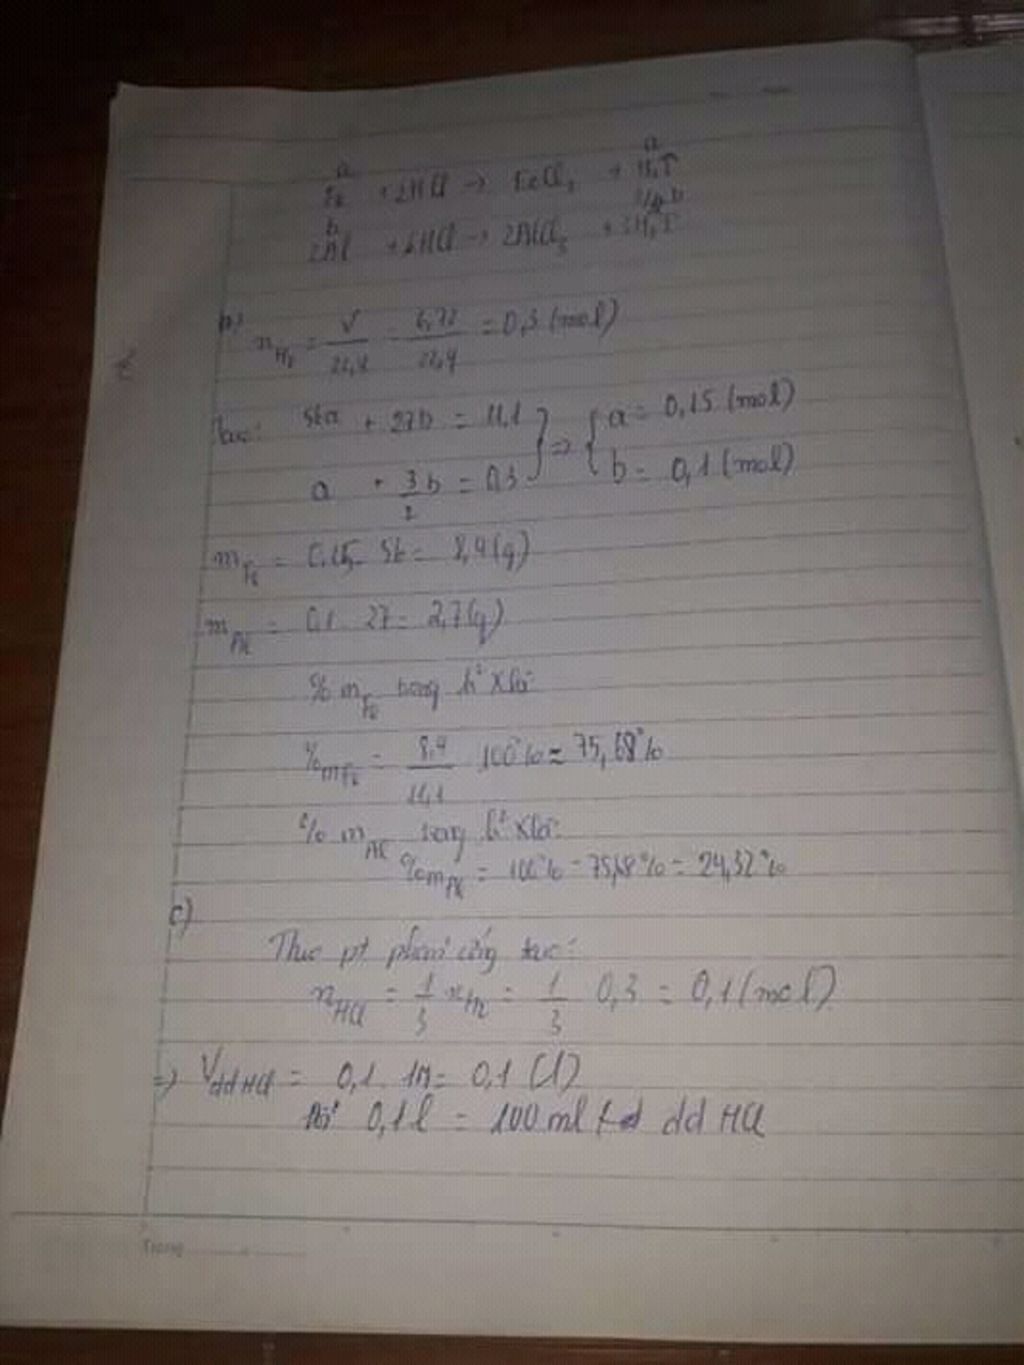 a a
Fe + 2HCl → FeCl₂ + H₂↑
b 3/2 b
2Al + 6HCl → 2AlCl₃ + 3H₂↑
b) n_H₂ = V/22,4 = 6,72/22,4 = 0,3 (mol)
56a + 27b = 11,1 } ⇒ { a = 0,15 (mol)
a + 3/2 b = 0,3 b = 0,1 (mol)
m_Fe = 0,15. 56 = 8,4 (g)
m_Al = 0,1 . 27 = 2,7 (g)
% m_Fe trong h² X là:
%m_Fe = 8,4/11,1 . 100% = 75,68%
% m_Al trong h² X là:
%m_Al = 100% - 75,68% = 24,32%
c)
Theo pt phản ứng
n_HCl = 1/3 n_H₂ = 1/3 . 0,3 = 0,1 (mol)
⇒ V_ddHCl = 0,1 . 1M = 0,1 (l)
0,1l = 100 ml dd HCl
Trang